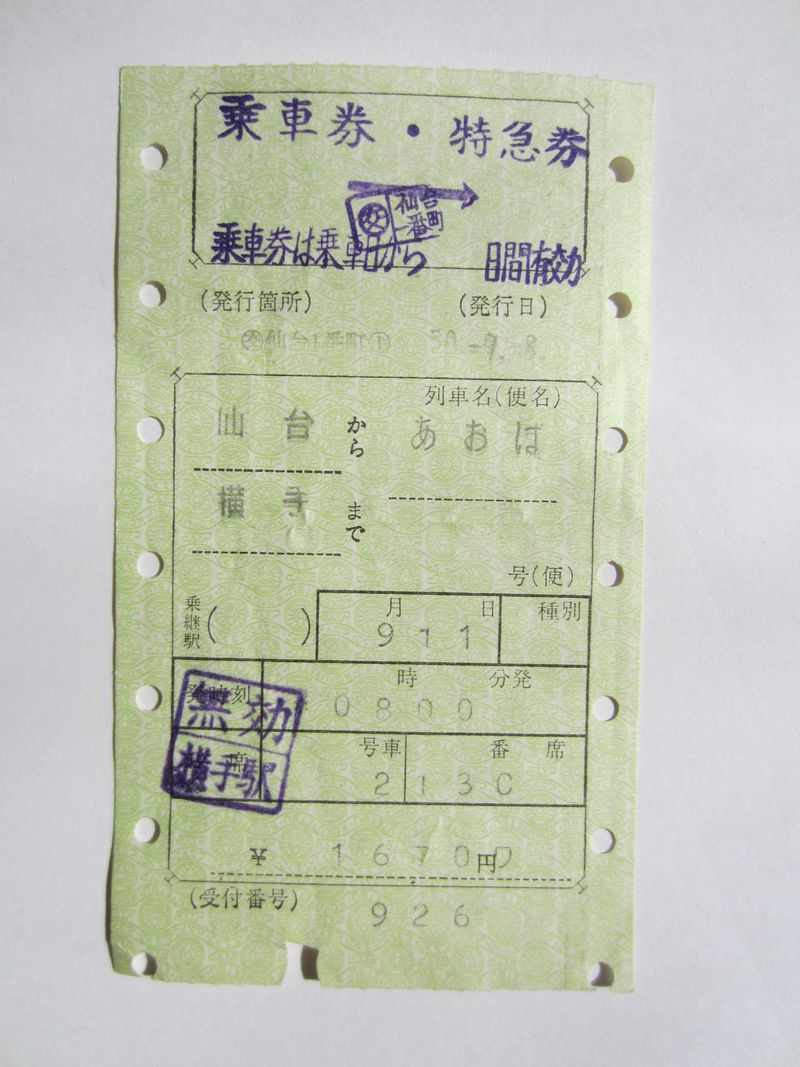 乗車券・特急券
仙台
一番町
乗車券は乗車日から 日間有効
(発行箇所) (発行日)
交仙台1番町 50.-9.-8.
列車名(便名)
仙台から あおば
横手まで
号(便)
乗継駅( ) 月 日 種別
9 11
発時刻 時 分発
0800
無効
横手駅
席 号車 番 席
2 13C
¥ 1670 円
(受付番号)
926